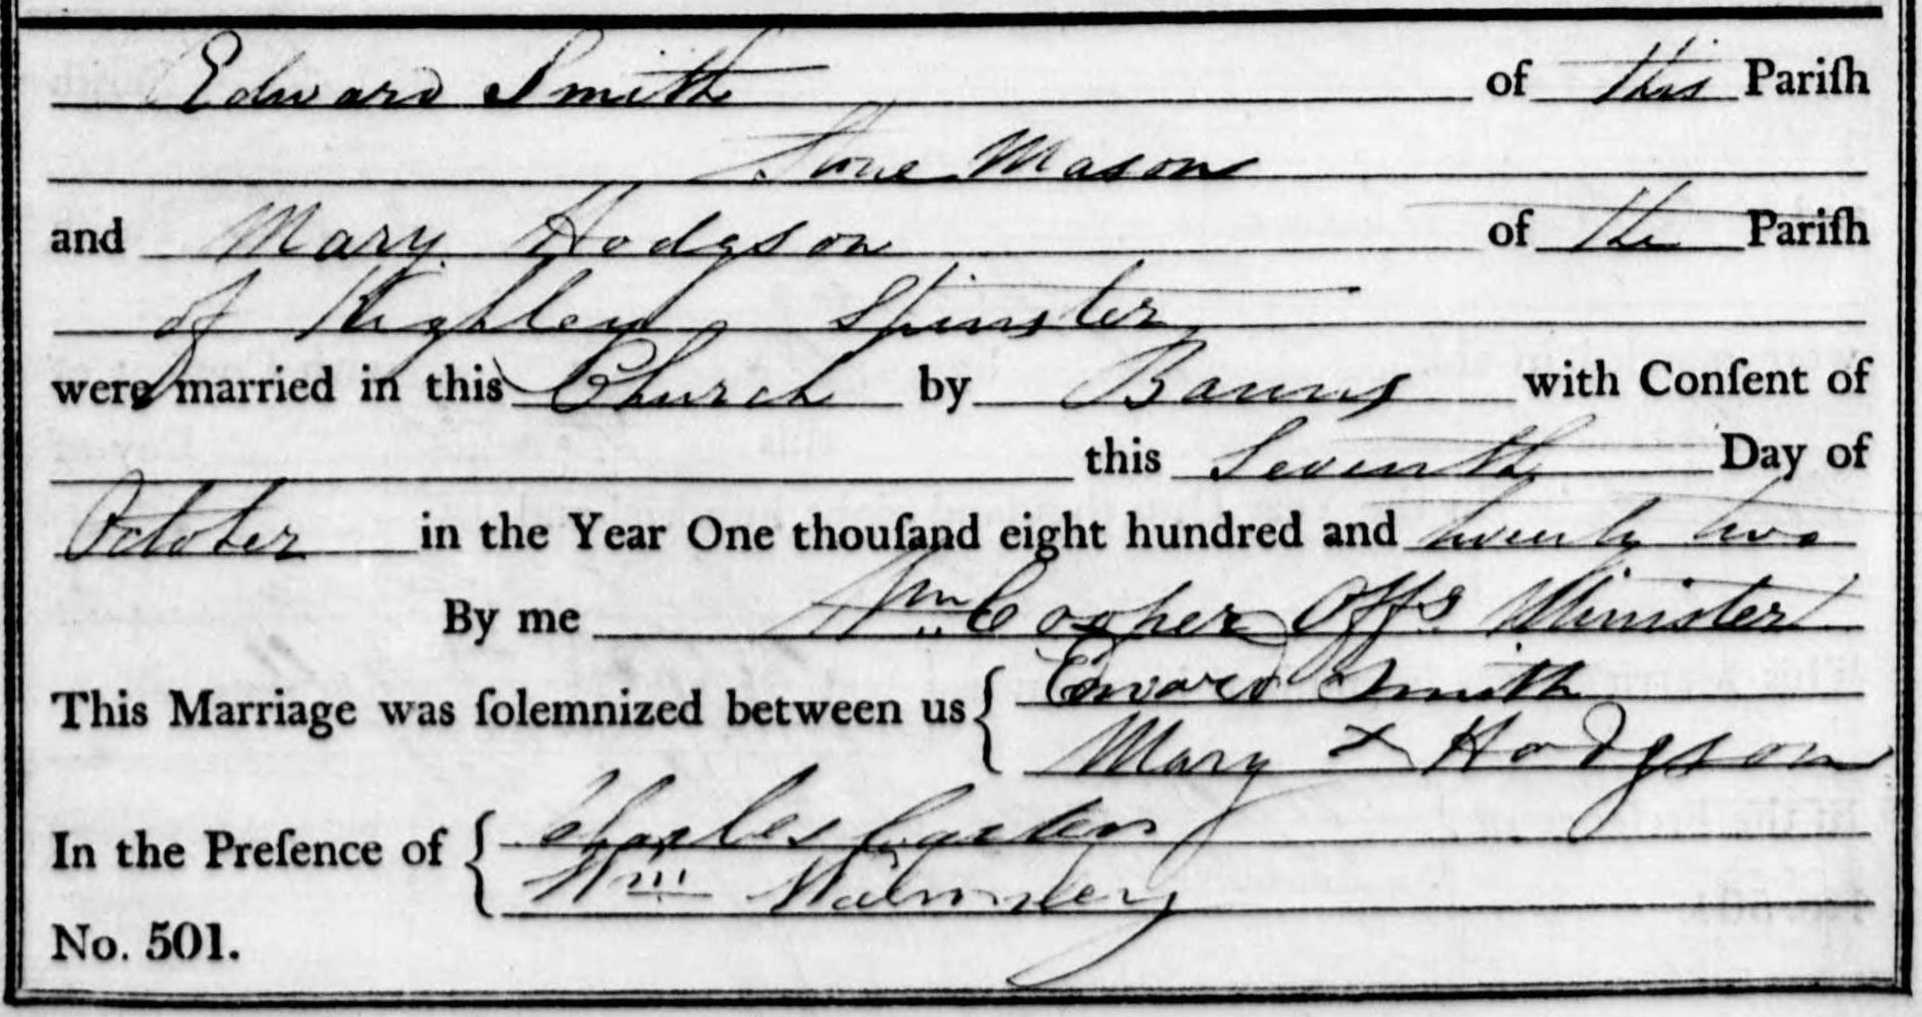 Edward Smith of this Pariſh
Stone Mason
and Mary Hodgson of the Pariſh
of Kighley Spinster
were married in this Church by Banns with Conſent of
this Seventh Day of
October in the Year One thouſand eight hundred and twenty two
By me Wm Cooper Offg Minister
This Marriage was ſolemnized between us { Edward Smith
Mary X Hodgson
In the Preſence of { Charles Carter
Wm Walmsley
No. 501.